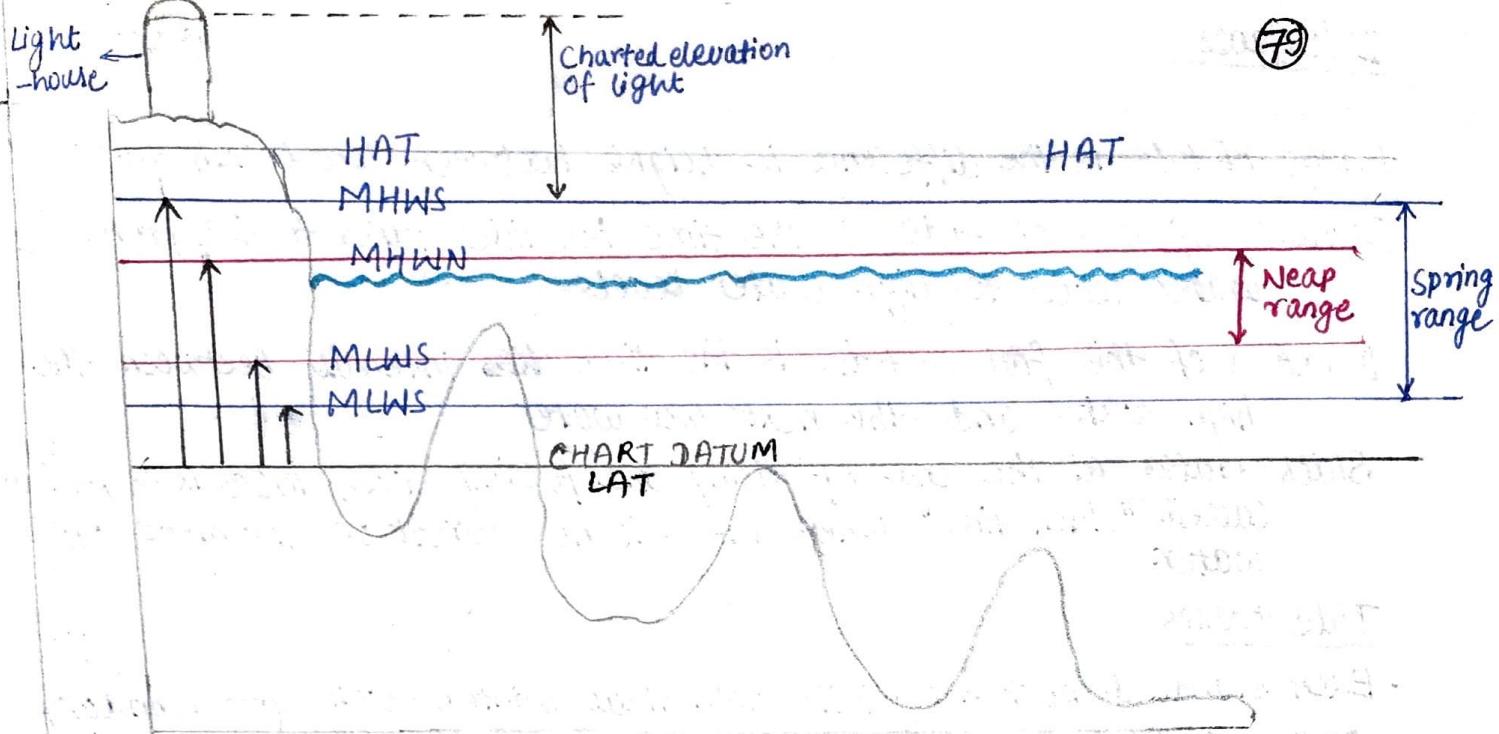 79
Light
-house
Charted elevation
of light
HAT
HAT
MHWS
MHWN
Neap
range
Spring
range
MLWS
MLWS
CHART DATUM
LAT